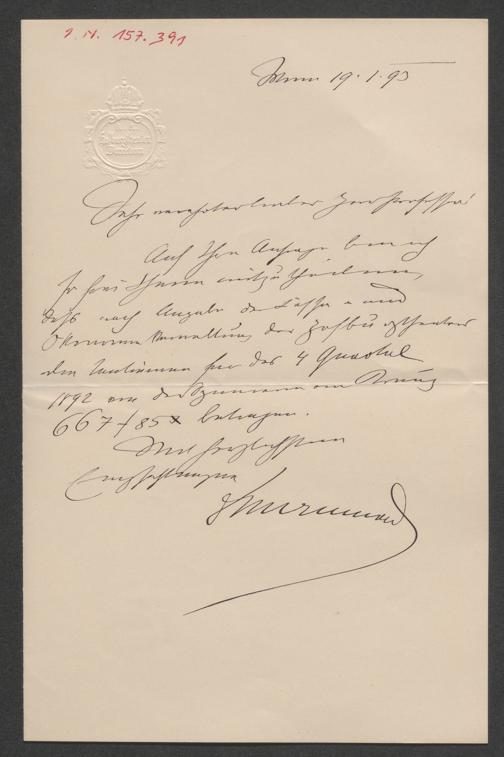 I. N. 157.391
Wien 19.1.93
Sehr verehrter lieber Herr Professor!
Auf Ihre Anfrage bin ich
so frei Ihnen mitzutheilen,
daß nach Angabe der Cassa- und
Ökonomie Verwaltung des Hofburgtheaters
die Tantièmen für das 4 Quartal
1892 von der
667 f 85 x betragen.
Mit herzlichsten
Empfehlungen